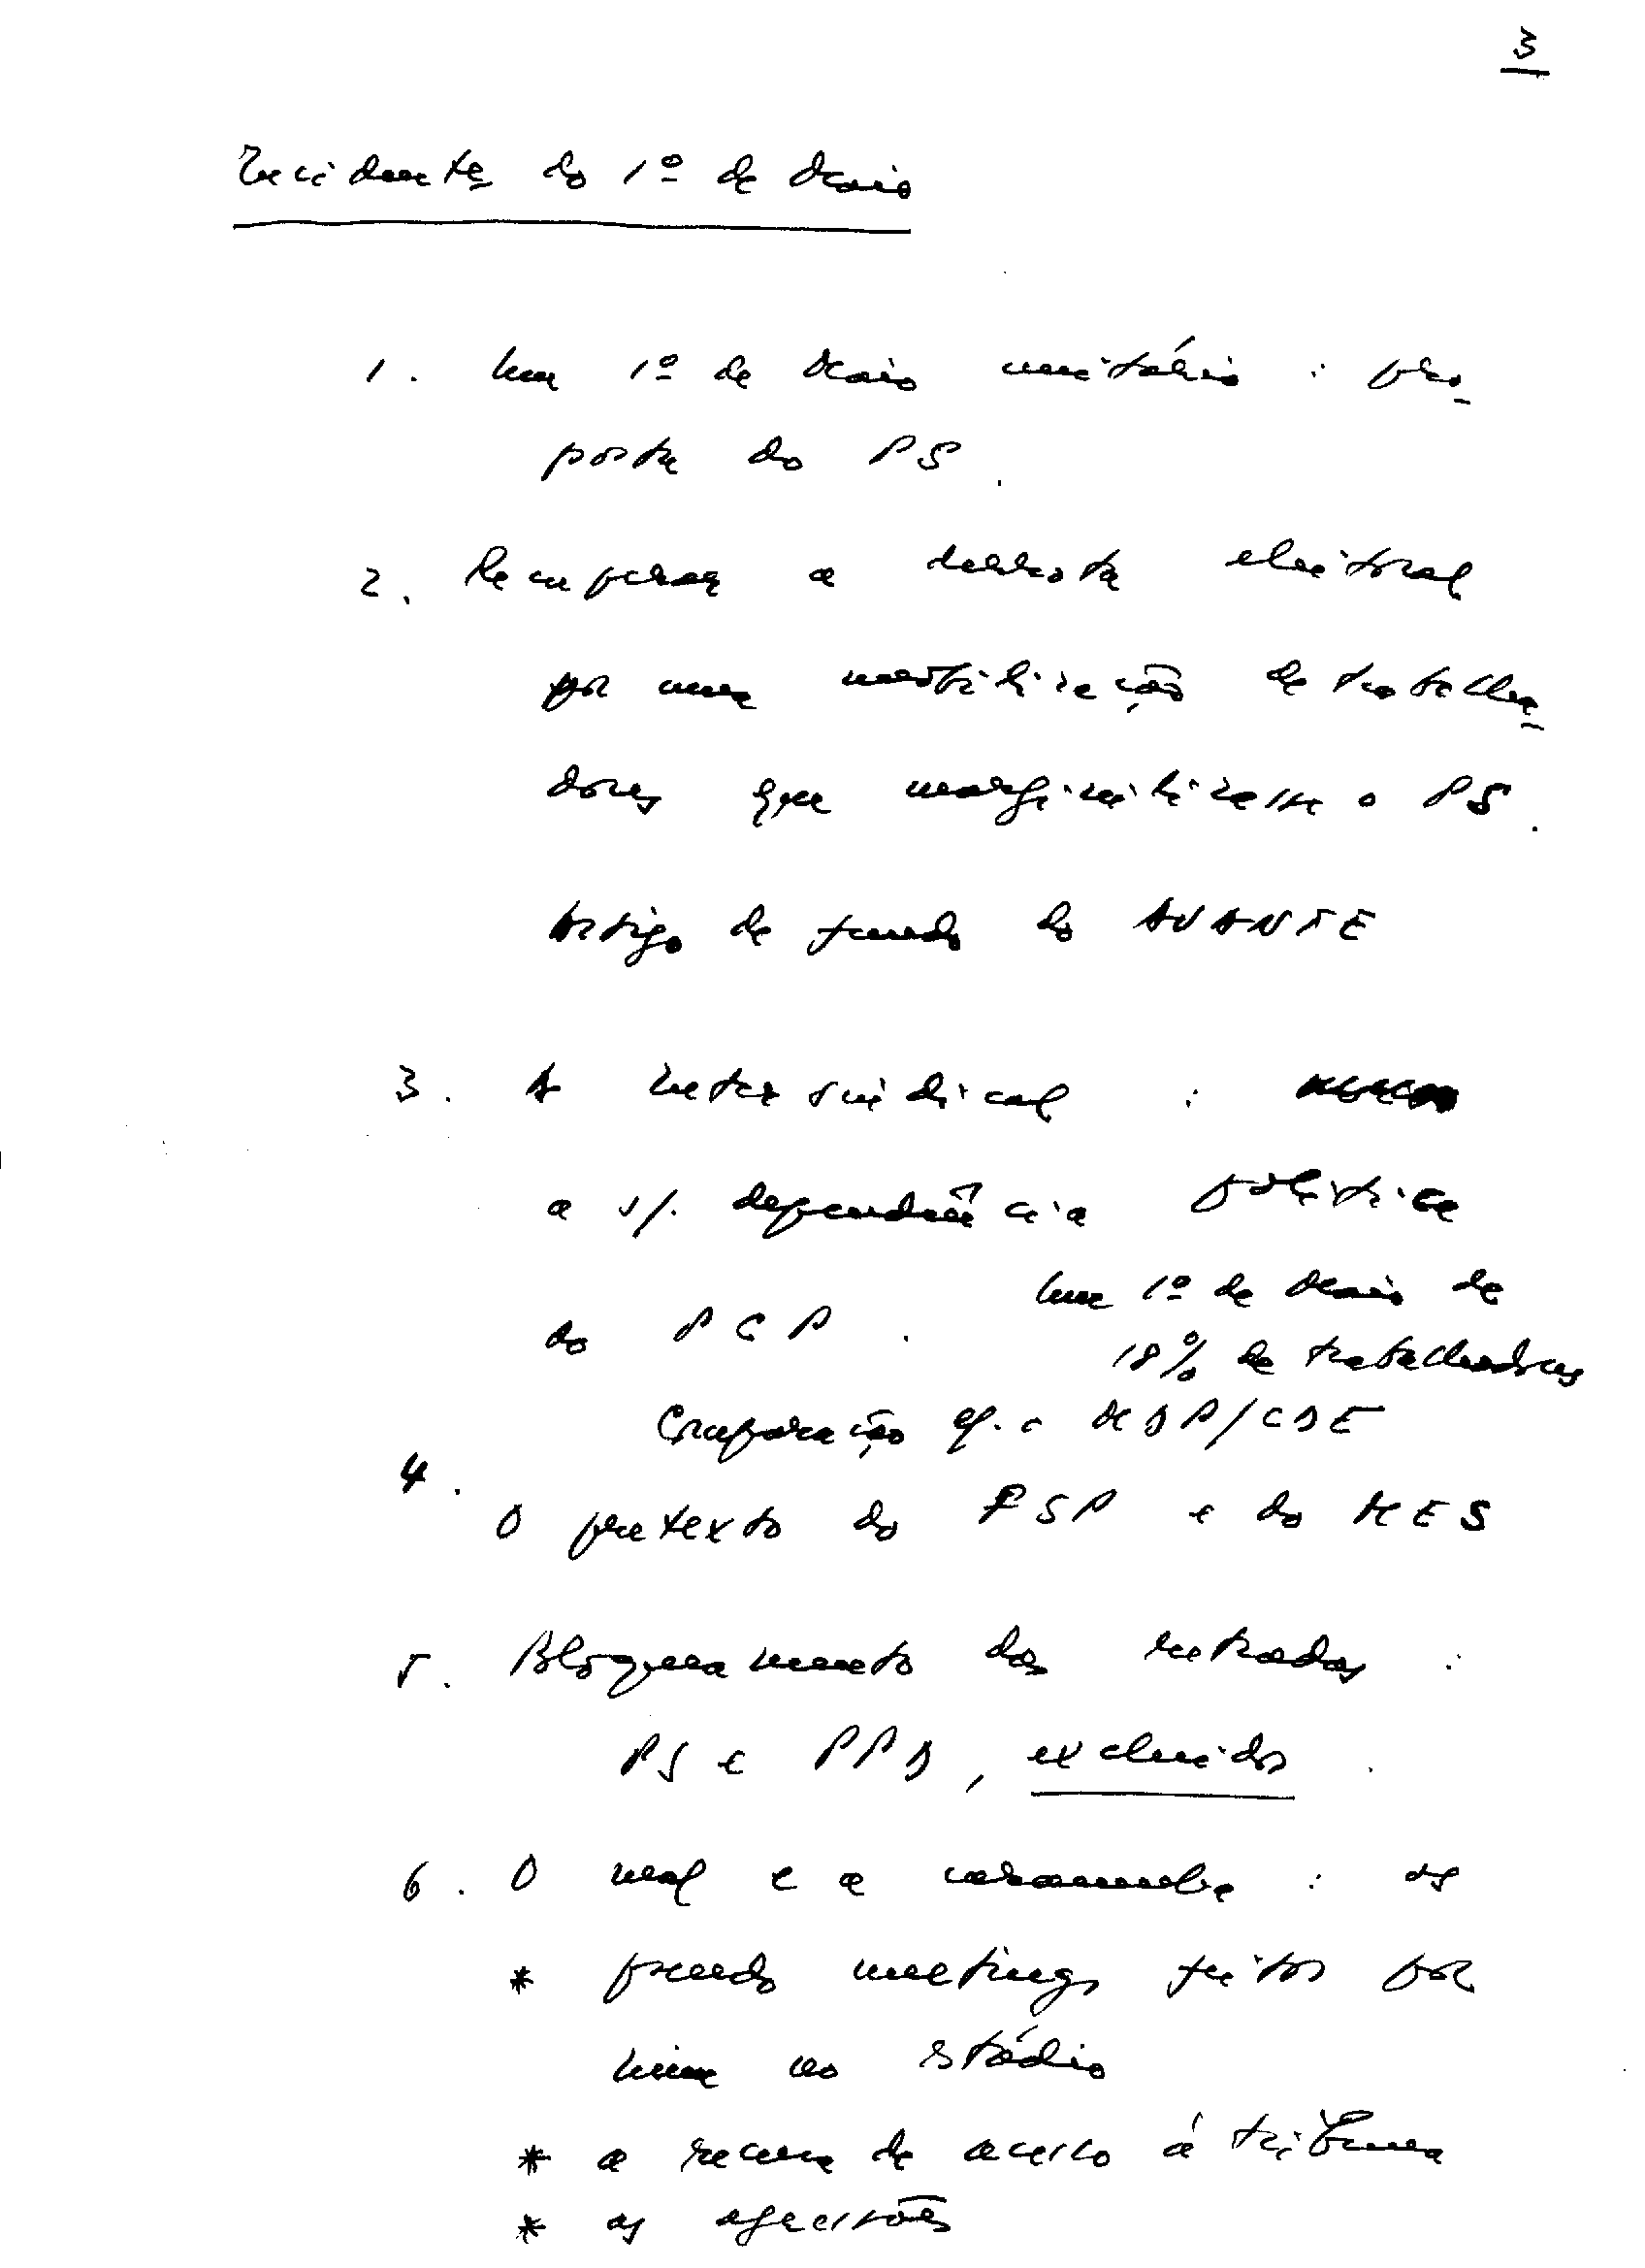 3
Incidentes do 1º de Maio
1. Um 1º de Maio unitário : pro-
posta do PS.
2. Recuperar a derrota eleitoral
por uma mobilização de trabalha-
dores que marginalizasse o PS.
Artigo de fundo do AVANTE
3. A Intersindical :
a s/. dependência política
do PCP. Um 1º de Maio de
18% de trabalhadores
Comparação c/. o MDP/CDE
4.
O pretexto do FSP e do MES
5. Bloqueamento das entradas :
PS e PPD, excluídos.
6. O mal e a caramunha : os
* grandes meetings feitos por
mim no estádio
* a recusa de acesso á tribuna
* as agressões